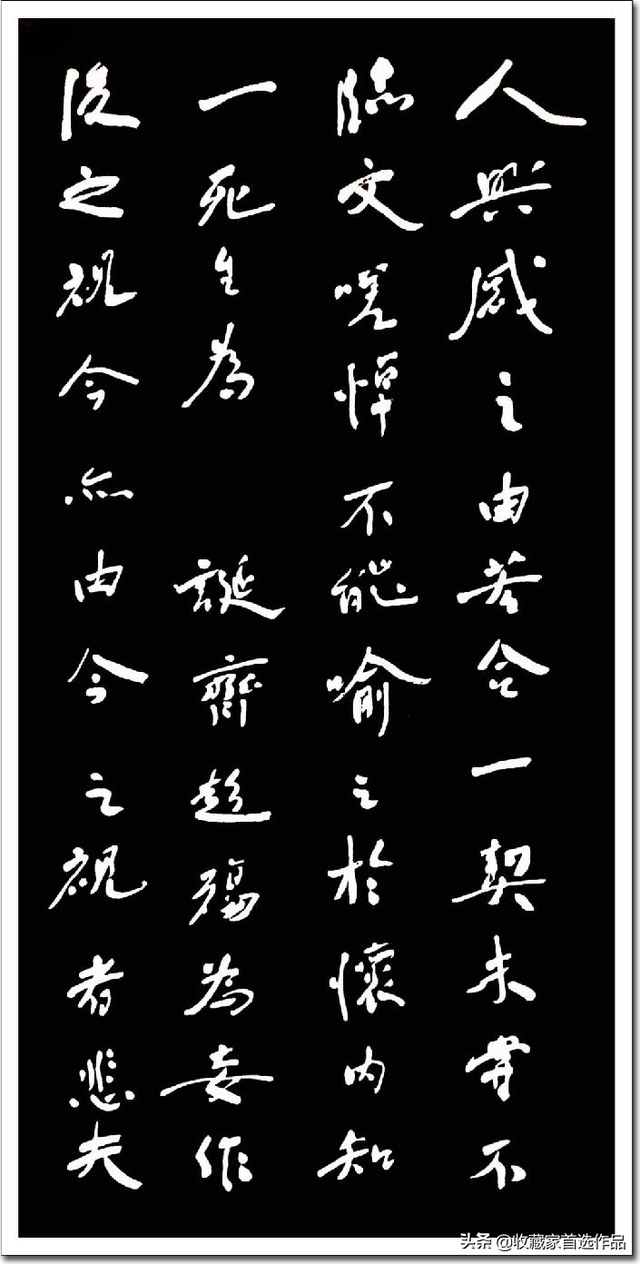 人興感之由若合一契未嘗不
臨文嗟悼不能喻之於懷內知
一死生為 誕齊彭殤為妄作
後之視今亦由今之視者悲夫
头条 @收藏家首选作品